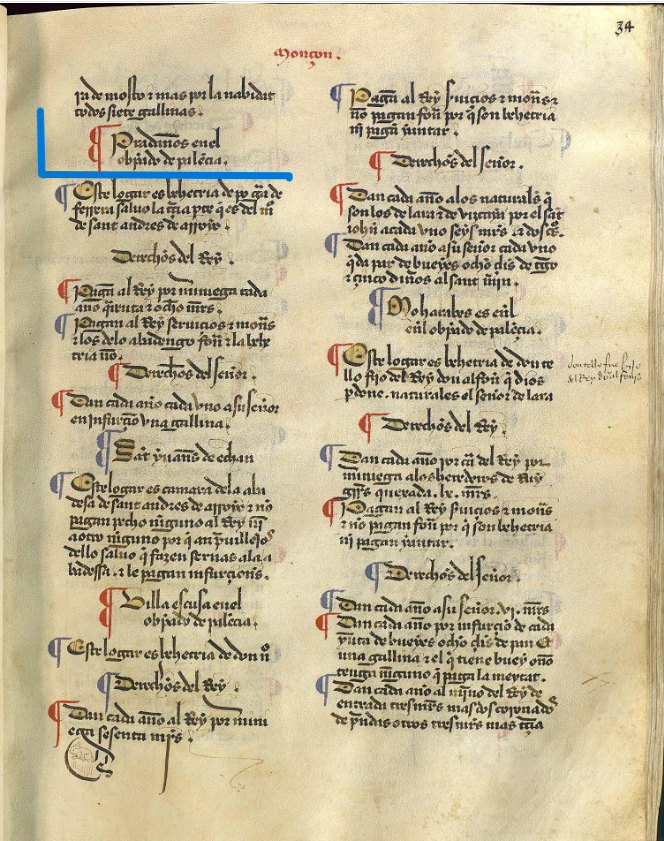 34
Monçon.
ra de mosto ⁊ mas por la nabidat
todos siete gallinas.
Pradinos enel
obpado de palẽcia.
Este logar es behetria de
ferrera saluo la q̃ es del
de sant andres de arroyo.
Derechos del Rey.
Pagã al Rey por cada
año ⁊ ocho mrs.
Pagan al Rey seruicios ⁊ monẽs
⁊ los delo abadengo fon̄ ⁊ la behe
tria no.
Derechos del señor.
Dan cada año cada vno a su señor
en infurciõ vna gallina.
Sãt yuanẽs de echan
Este logar es camara dela aba
desa de sant andres de arroyo ⁊ nõ
pagan pecho ninguno al Rey nĩ
a otro ninguno por q̃ an p̃uillejo
dello saluo q̃ fazen sernas ala a
badessa. ⁊ le pagan infurciones.
Villa escusa enel
obpado de palẽcia.
Este logar es behetria de don nº
Derechos del Rey.
Dan cada año al Rey por mini
ega sesenta mrs.
Pagã al Rey suicios ⁊ monẽs ⁊
nõ pagan fon̄ por q̃ son behetria
ni pagã yantar.
Derechos del señor.
Dan cada año alos naturales q̃
son los de lara ⁊ de vizcaya por el sãt
iohñ a cada vno seys mrs. ⁊ dos
Dan cada año a su señor cada vno
q̃ da par de bueyes ocho çls de tgo
⁊ çinco dĩos al sant mĩn.
Moharabes es enl
enl obpado de palẽcia.
Este logar es behetria de don te
llo fijo del Rey don alfon̄ q̃ dios
p̃done. naturales el señor de lara
don tello fue fijo
del Rey don alfonso
Derechos del Rey.
Dan cada año por del Rey por
miniega alos herederos de Ruy
quexada. lx. mrs.
Pagan al Rey suicios ⁊ monẽs
⁊ nõ pagan fon̄ por q̃ son behetria
ni pagan yantar.
Derechos del señor.
Dan cada año a su señor. vi. mrs
Dan cada año por infurciõ de cada
yũta de bueyes ocho çls de pan ⁊
una gallina ⁊ el q̃ tiene buey o nõ
tenga ninguno q̃ paga la meytat.
Dan cada año al mino del Rey de
entrada tres mrs mas dos coronado
de otros tres mrs mas